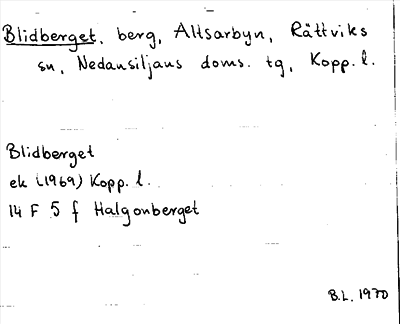 Blidberget, berg, Altsarbyn, Rättviks
sn, Nedansiljans doms. tg, Kopp. l.
Blidberget
ek (1969) Kopp. l.
14 F 5 f Halgonberget
B.L. 1970